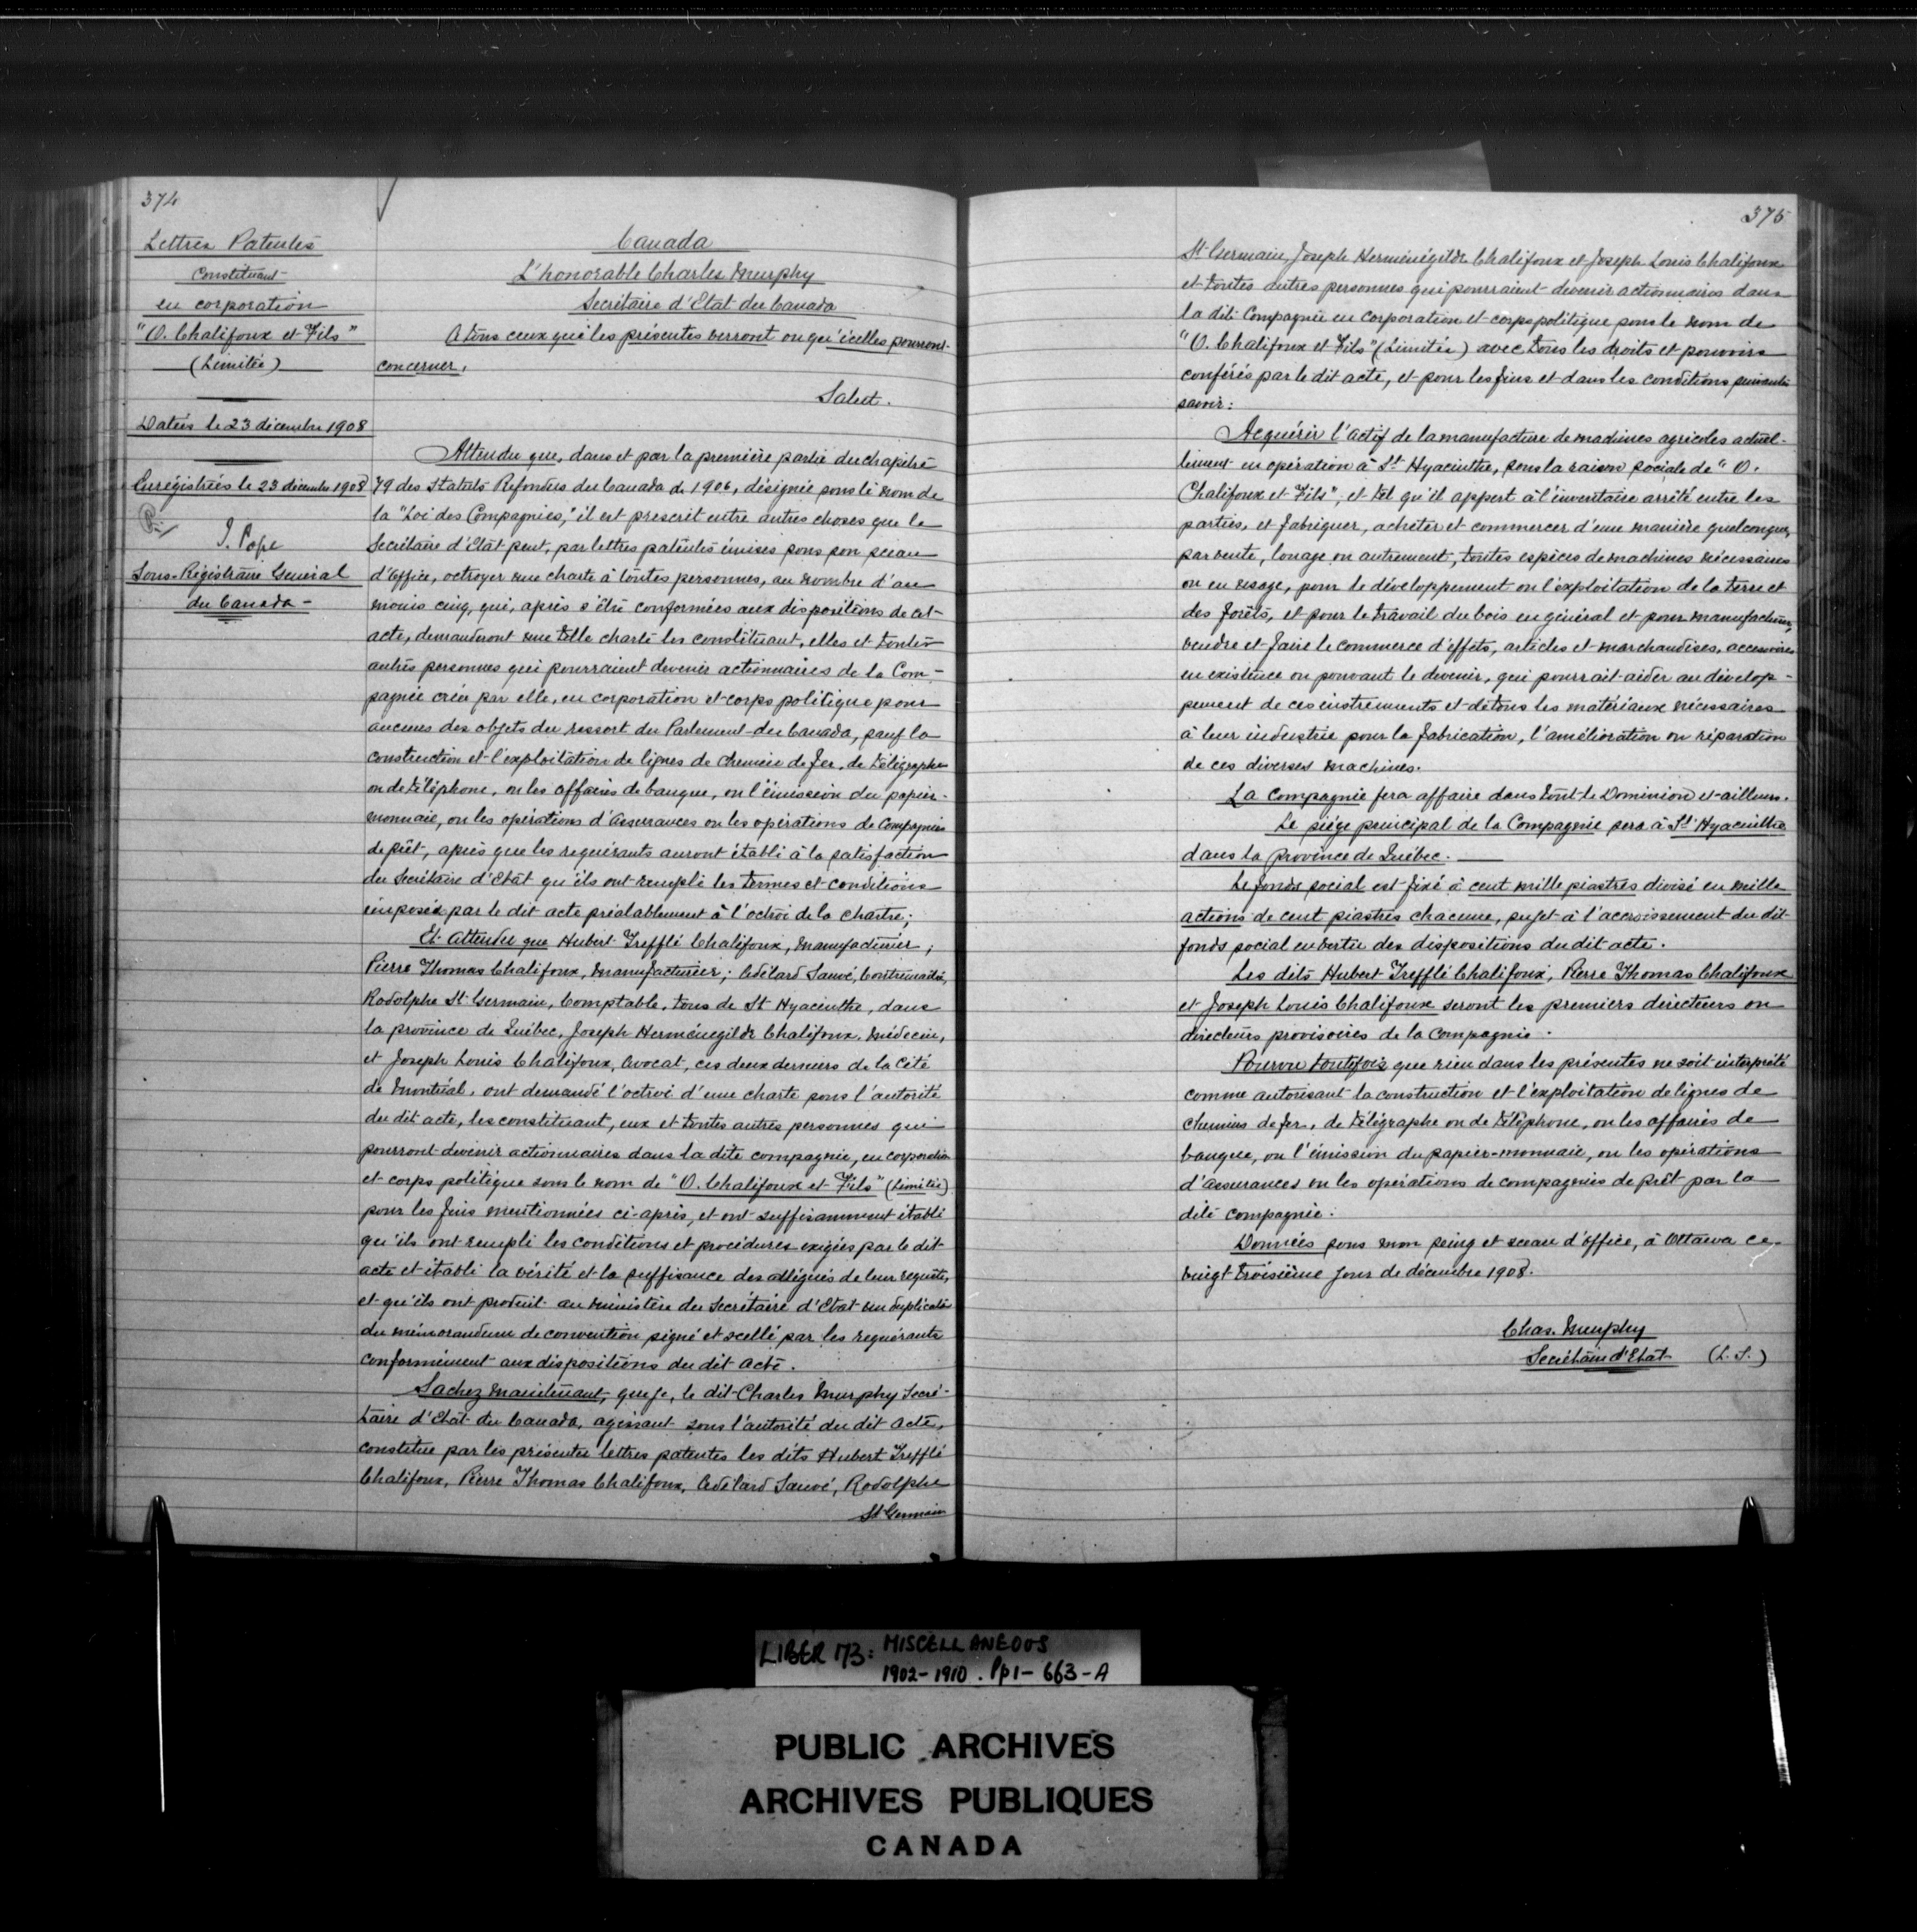 374
Lettres Patentes
Constituant
en corporation
"O. Chalifoux et Fils"
(Limitée)
Datées le 23 décembre 1908
Enrégistrées le 23 décembre 1908
J. Pope
Sous-Régistraire Général
du Canada -
Canada
L'honorable Charles Murphy
Secrétaire d'Etat du Canada
A tous ceux que les présentes verront ou qu'icelles pourront
concerner,
Salut.
Attendu que, dans et par la première partie du chapitre
79 des Statuts Refondus du Canada de 1906, désignée sous le nom de
la "Loi des Compagnies," il est prescrit entre autres choses que le
Secrétaire d'Etat peut, par lettres patentes émises sous son sceau
d'office, octroyer une charte à toutes personnes, au nombre d'au
moins cinq, qui, après s'être conformées aux dispositions de cet
acte, demanderont une telle charte les constituant, elles et toutes
autres personnes qui pourraient devenir actionnaires de la Com-
pagnie créée par elle, en corporation et corps politique pour
aucunes des objets du ressort du Parlement du Canada, sauf la
construction et l'exploitation de lignes de chemin de fer, de télégraphe
ou de téléphone, ou les affaires de banque, ou l'émission du papier-
monnaie, ou les opérations d'assurances ou les opérations de Compagnies
de prêt, après que les requérants auront établi à la satisfaction
du Secrétaire d'Etat qu'ils ont rempli les termes et conditions
imposés par le dit acte préalablement à l'octroi de la chartre;
Et Attendu que Hubert Trefflé Chalifoux, manufacturier;
Pierre Thomas Chalifoux, manufacturier; Adélard Sauvé, Contremaître,
Rodolphe St Germain, Comptable, tous de St Hyacinthe, dans
la province de Québec, Joseph Herménégilde Chalifoux, médecin,
et Joseph Louis Chalifoux, Avocat, ces deux derniers de la Cité
de Montréal, ont demandé l'octroi d'une charte sous l'autorité
du dit acte, les constituant, eux et toutes autres personnes qui
pourront devenir actionnaires dans la dite compagnie, en corporation
et corps politique sous le nom de "O. Chalifoux et Fils" (Limitée)
pour les fins mentionnées ci-après, et ont suffisamment établi
qu'ils ont rempli les conditions et procédures exigées par le dit
acte et établi la vérité et la suffisance des allégués de leur requête,
et qu'ils ont produit au ministère du Secrétaire d'Etat un duplicata
du mémorandum de convention signé et scellé par les requérants
conformément aux dispositions du dit Acte.
Sachez maintenant, que je, le dit Charles Murphy Secré-
taire d'Etat du Canada, agissant sous l'autorité du dit acte,
constitue par les présentes lettres patentes les dits Hubert Trefflé
Chalifoux, Pierre Thomas Chalifoux, Adélard Sauvé, Rodolphe
St Germain
375
St Germain, Joseph Herménégilde Chalifoux et Joseph Louis Chalifoux
et toutes autres personnes qui pourraient devenir actionnaires dans
la dite Compagnie en corporation et corps politique sous le nom de
"O. Chalifoux et Fils" (Limitée) avec tous les droits et pouvoirs
conférés par le dit acte, et pour les fins et dans les conditions suivantes
savoir:
Acquérir l'actif de la manufacture de machines agricoles actuel-
lement en opération à St Hyacinthe, sous la raison sociale de "O.
Chalifoux et Fils", et tel qu'il appert à l'inventaire arrêté entre les
parties, et fabriquer, acheter et commercer d'une manière quelconque,
par vente, louage ou autrement, toutes espèces de machines nécessaires
ou en usage, pour le développement ou l'exploitation de la terre et
des forêts, et pour le travail du bois en général et pour manufacturer,
vendre et faire le commerce d'effets, articles et marchandises, accessoires
en existence ou pouvant le devenir, qui pourrait aider au dévelop-
pement de ces instruments et de tous les matériaux nécessaires
à leur industrie pour la fabrication, l'amélioration ou réparation
de ces diverses machines.
La Compagnie fera affaire dans tout le Dominion et ailleurs.
Le siège principal de la Compagnie sera à St Hyacinthe
dans la province de Québec.
Le fonds social est fixé à cent mille piastres divisé en mille
actions de cent piastres chacune, sujet à l'accroissement du dit
fonds social en vertu des dispositions du dit acte.
Les dits Hubert Trefflé Chalifoux, Pierre Thomas Chalifoux
et Joseph Louis Chalifoux seront les premiers directeurs ou
directeurs provisoires de la Compagnie.
Pourvu toutefois que rien dans les présentes ne soit interprété
comme autorisant la construction et l'exploitation de lignes de
chemins de fer, de télégraphe ou de téléphone, ou les affaires de
banque, ou l'émission du papier-monnaie, ou les opérations
d'assurances ou les opérations de compagnies de prêt par la
dite compagnie.
Données sous mon seing et sceau d'office, à Ottawa ce
vingt troisième jour de décembre 1908.
Chas. Murphy
Secrétaire d'Etat (L.S.)
LIBER 173: MISCELLANEOUS
1902-1910. Pp 1-663-A
PUBLIC ARCHIVES
ARCHIVES PUBLIQUES
CANADA